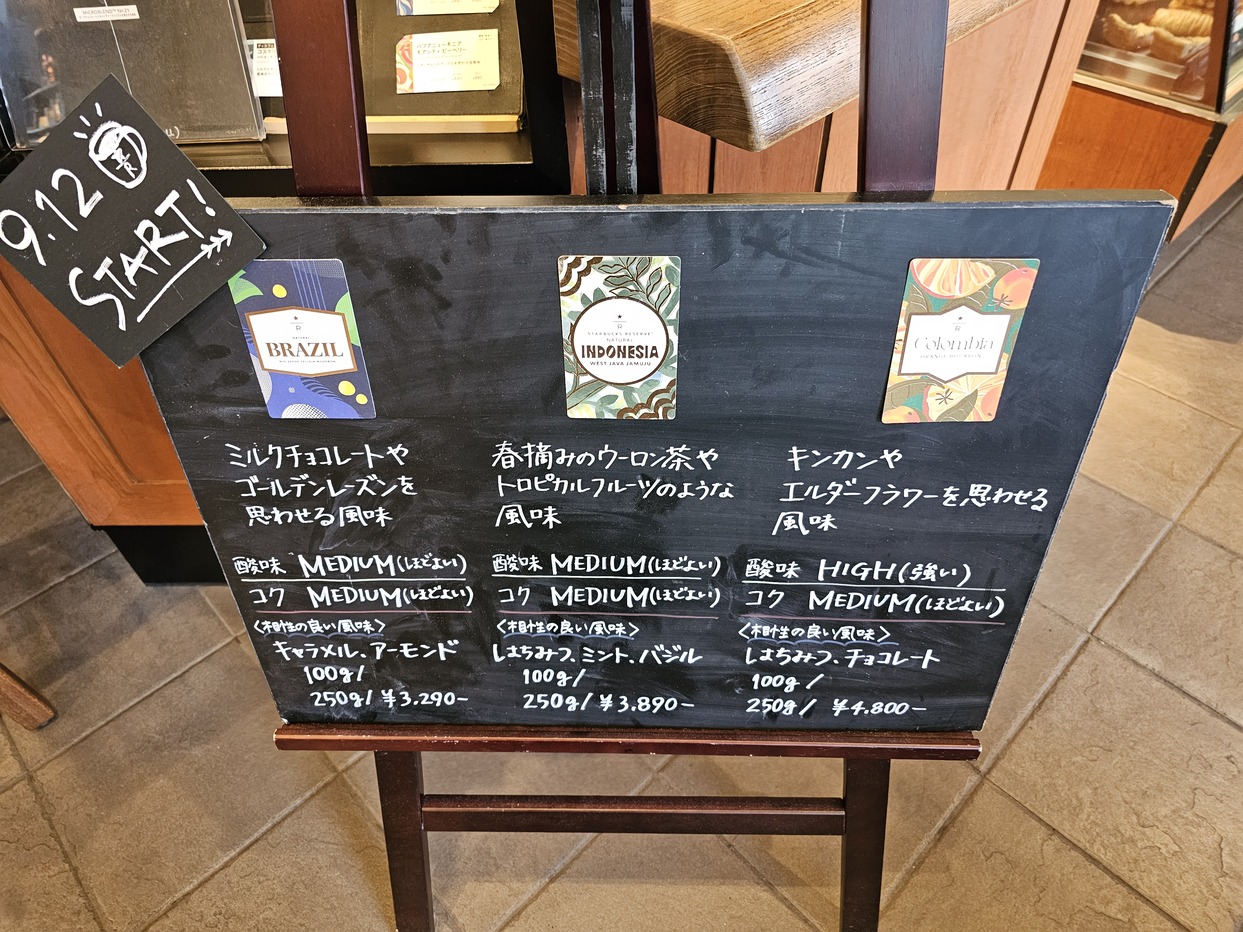 9.12
START!
パプアニューギニア
BRAZIL
STARBUCKS RESERVE
NATURAL
INDONESIA
WEST JAVA JAMUJU
Colombia
ミルクチョコレートや
ゴールデンレーズンを
思わせる風味
酸味 MEDIUM(ほどよい)
コク MEDIUM(ほどよい)
<相性の良い風味>
キャラメル、アーモンド
100g/
250g/ ¥3.290-
春摘みのウーロン茶や
トロピカルフルーツのような
風味
酸味 MEDIUM(ほどよい)
コク MEDIUM(ほどよい)
<相性の良い風味>
はちみつ、ミント、バジル
100g/
250g/ ¥3.890-
キンカンや
エルダーフラワーを思わせる
風味
酸味 HIGH(強い)
コク MEDIUM(ほどよい)
<相性の良い風味>
はちみつ、チョコレート
100g/
250g/ ¥4.800-